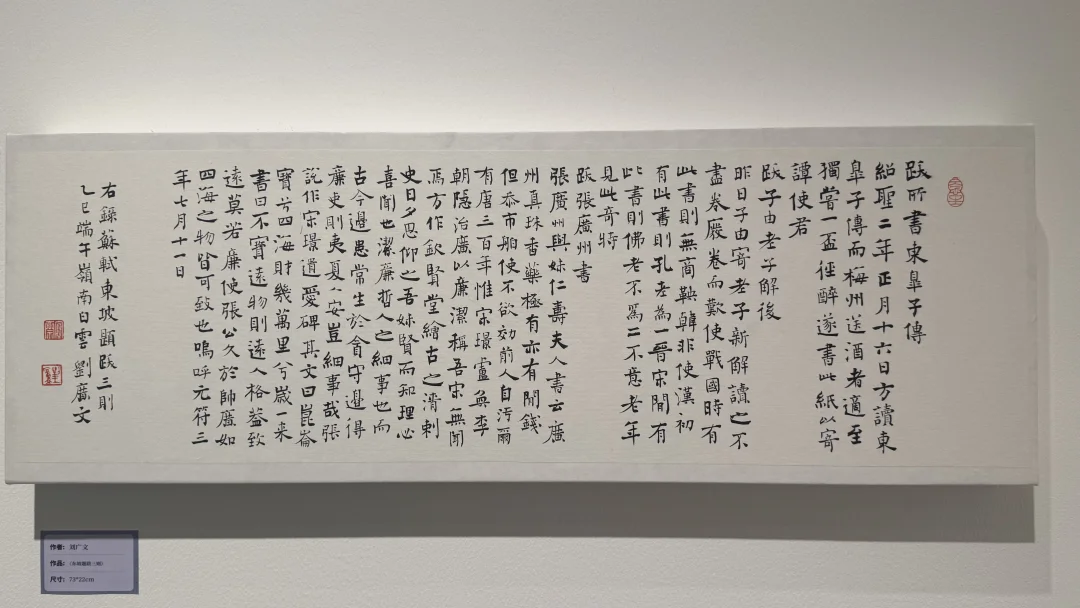 跋所書東皐子傳
紹聖二年正月十六日方讀東
皐子傳而梅州送酒者適至
獨嘗一盃徑醉遂書此紙以寄
譚使君
跋子由老子解後
昨日子由寄老子新解讀之不
盡卷廢卷而歎使戰國時有
此書則無商鞅韓非使漢初
有此書則孔老為一晉宋間有
此書則佛老不為二不意老年
見此奇特
跋張廣州書
張廣州與妹仁壽夫人書云廣
州真珠香藥極有亦有閒錢
但忝市舶使不欲効前人自污爾
有唐三百年惟宋璟盧奐李
朝隱治廣以廉潔稱吾宋無聞
焉方作欽賢堂繪古之清刺
史日夕思仰之吾妹賢而知理必
喜聞也潔廉哲人之細事也而
古今邊患常生於貪守邊得
廉吏則夷夏人安豈細事哉張
說作宋璟遺愛碑其文曰崑崙
寶兮四海財幾萬里兮歲一来
書曰不寶遠物則遠人格葢致
遠莫若廉使張公久於帥廣如
四海之物皆可致也嗚呼元符三
年七月十一日
右錄蘇軾東坡題跋三則
乙巳端午嶺南白雲劉廣文
作者：刘广文
作品：
尺寸：73*22cm